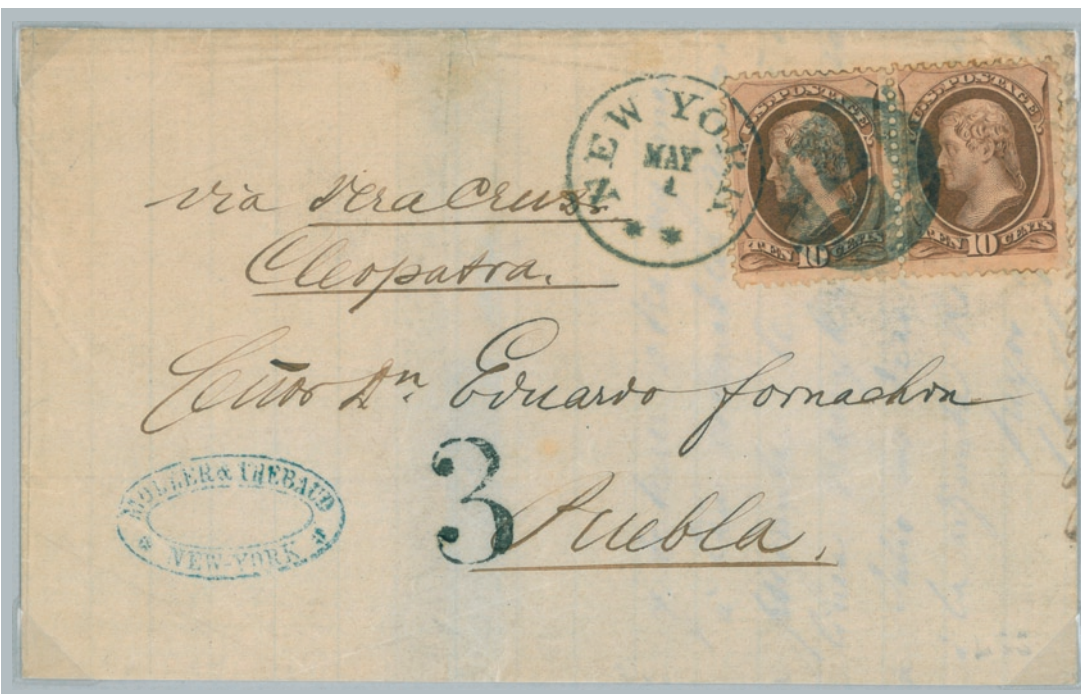 NEW YORK
MAY
1
U.S. POSTAGE
TEN 10 CENTS
U.S. POSTAGE
TEN 10 CENTS
via Vera Cruz.
Cleopatra.
Señor Dn. Eduardo Fornachon
3
Puebla.
MOLLER & THEBAUD
NEW-YORK